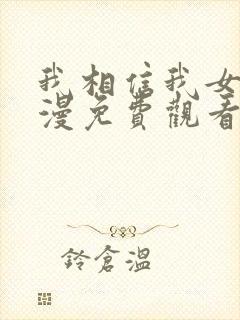 我相信我女
漫免費觀看
鈴倉溫